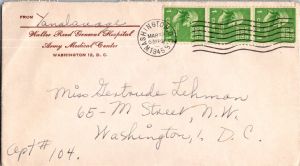 FROM
Walter Reed General Hospital
Army Medical Center
WASHINGTON 12, D. C.
WASHINGTON
MAR
1945
Miss Gertrude Lehman
65-M Street, N.W.
Washington, 1. D.C.
Apt# 104.